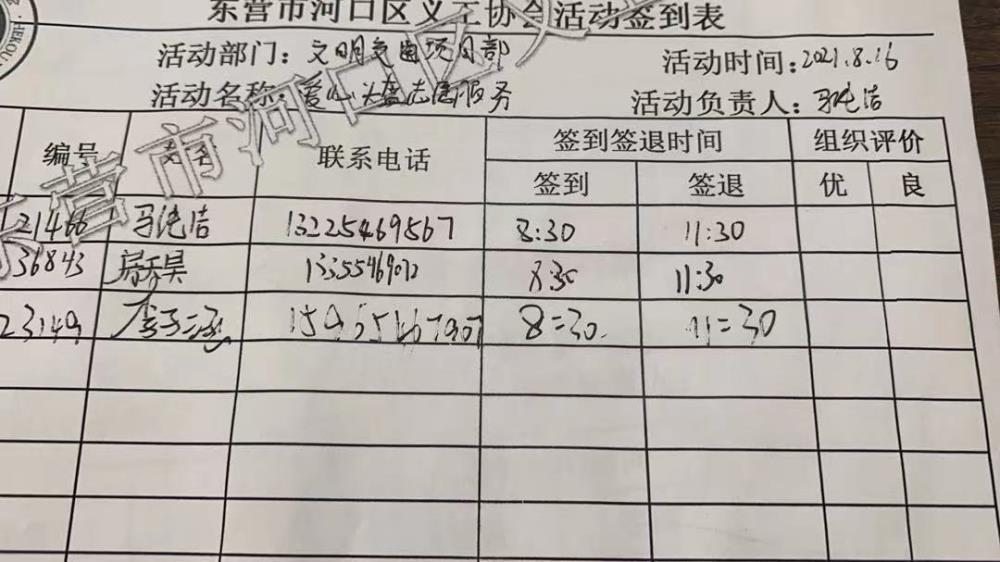 东营市河口区义工协会活动签到表
活动部门：文明交通项目部 活动时间：2021.8.16
活动名称：爱心 志愿服务 活动负责人：马纯洁
编号 姓名 联系电话 签到签退时间 组织评价
签到 签退 优 良
21466 马纯洁 13225469567 8:30 11:30
36843 13355469072 8:30 11:30
23149 李子涵 8=30 11=30
东营市河口区义工
HEKOU